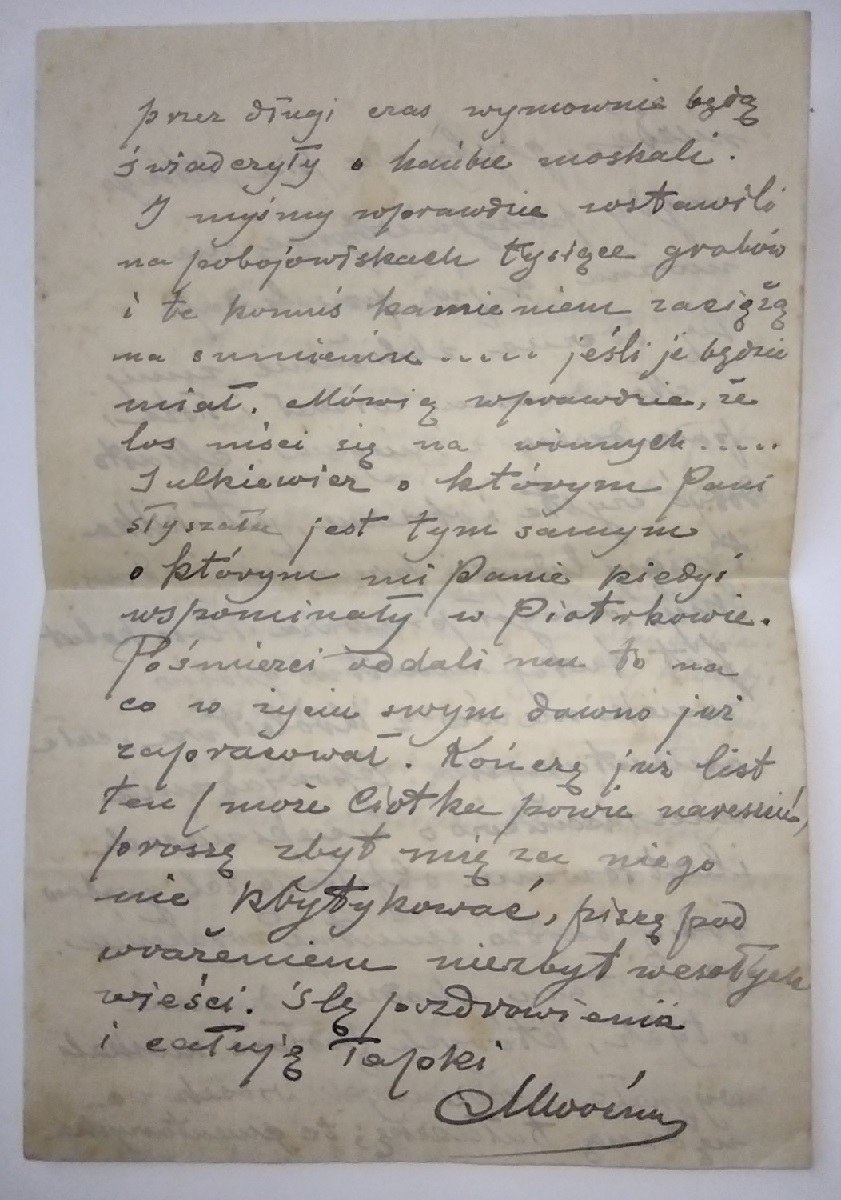 przez długi czas wymownie będą
świadczyły o hańbie moskali.
I myśmy wprawdzie wstawili
na pobojowiskach tysiące grobów
i te komuś kamieniem zaciężą
na sumieniu ..... jeśli je będzie
miał. Mówią wprawdzie, że
los mści się na winnych .....
Julkiewicz o którym Pani
słyszała jest tym samym
o którym mi Panie kiedyś
wspominały w Piotrkowie.
Pośmierci oddali mu to na
co w życiu swym dawno już
zapracował. Kończę już list
ten (może Ciotka powie nareszcie,
proszę zbyt mię za niego
nie krytykować, piszę pod
wrażeniem niezbyt wesołych
wieści. Ślę pozdrowienia
i całuję łapki